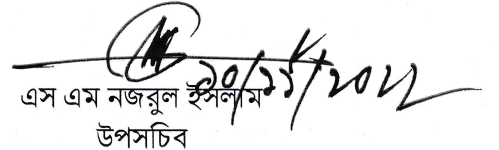 ১০/১১/২০২২
এস এম নজরুল ইসলাম
উপসচিব